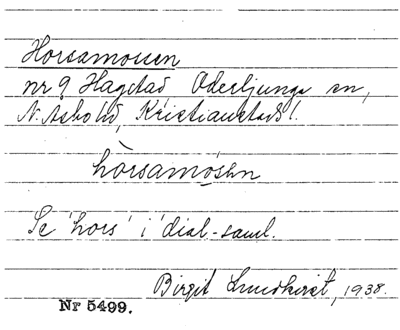 Horsamossen
nr 9 Hagstad, Oderljunga sn,
N. Åsbo hd, Kristianstads l.
hòrsamòsən
Se 'hors' i dial-saml.
Birgit Lundkvist, 1938.
Nr 5499.